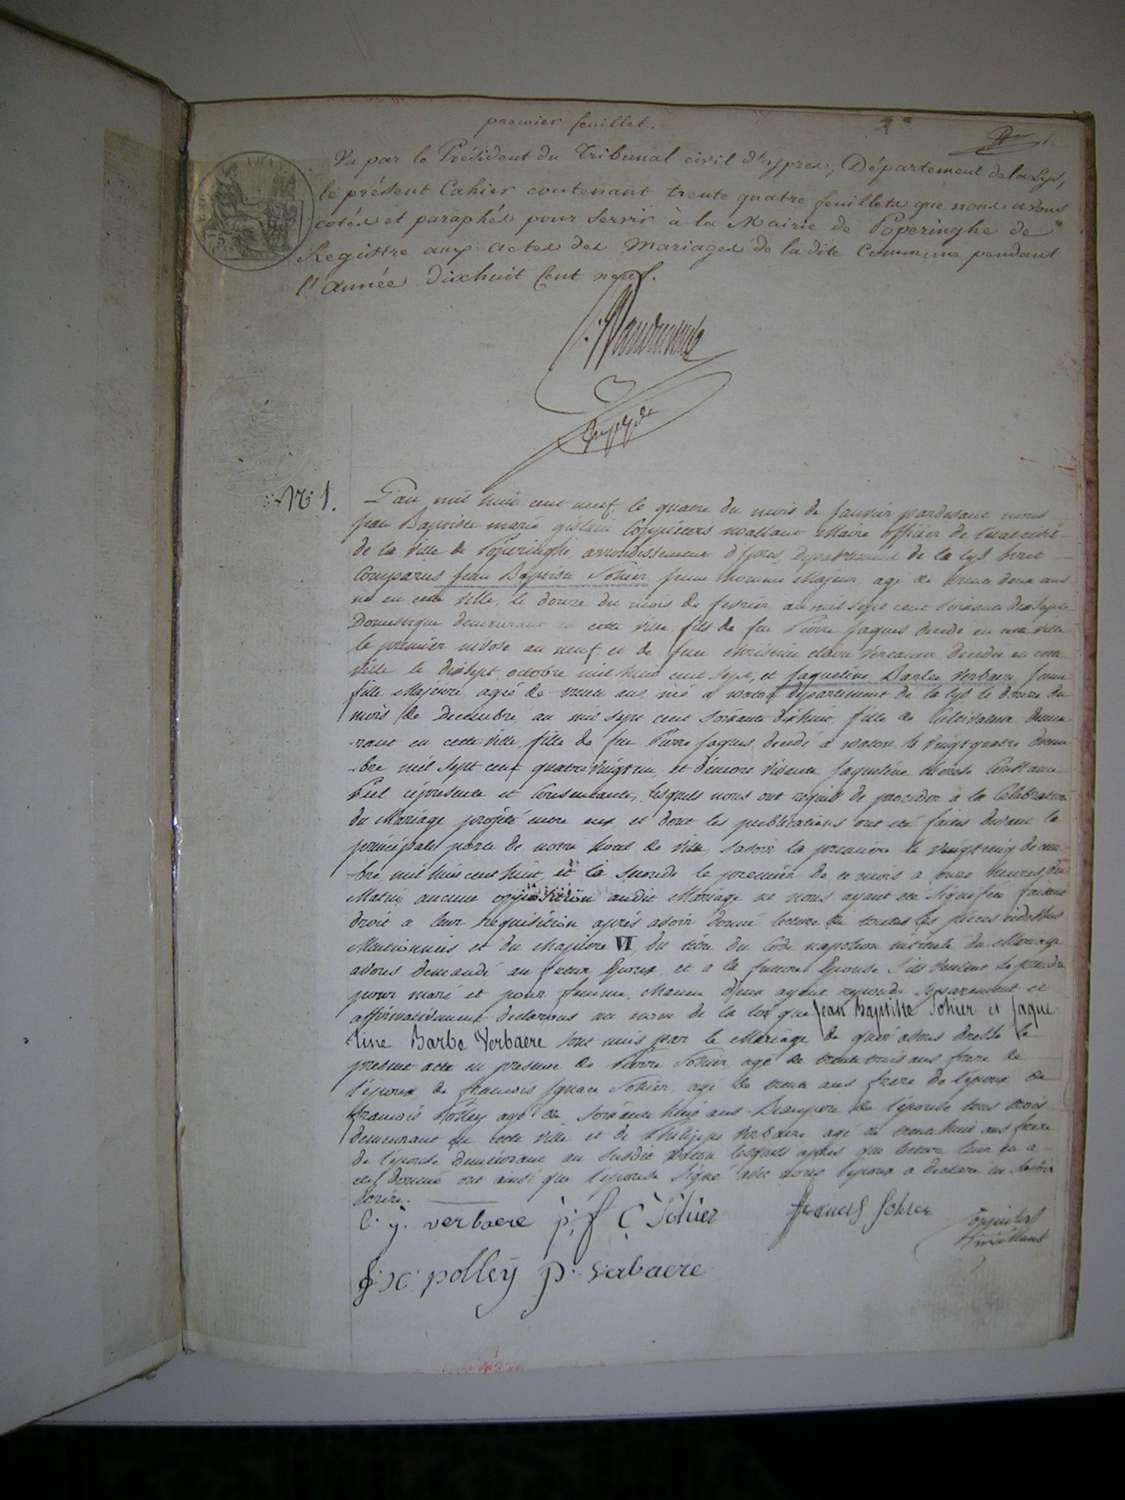 premier feuillet.
Vu par le Président du Tribunal civil d'ypres, Département de la Lys,
le présent Cahier contenant trente quatre feuillets que nous avons
cotés et paraphés pour servir à la Mairie de Poperinghe de
Registre aux actes des Mariages de la dite Commune pendant
l'année dixhuit Cent neuf.
N° 1.
L'an mil huit cent neuf le quatre du mois de Janvier pardevant nous
Jean Baptiste marie gislain Maire officier de
de la ville de Poperinghe, arrondissement d'Ypres, Departement de la Lys sont
Comparus Jean Baptiste Sohier jeune homme Majeur, agé de trente deux ans
né en cette ville, le douze du mois de fevrier an mil sept cent soixante dixsept
Domestique demeurant en cette ville fils de feu Pierre Jaques decedé en cette ville
le premier nivose an neuf et de feue claire decedée en cette
ville le dixsept octobre mil huit cent sept, et Jaqueline Barbe Verbaere jeune
fille Majeure agée de trente ans née a watou departement de la Lys le douze du
mois de Decembre an mil sept cent soixante dixhuit, fille de Cultivateur demeu
-rant en cette ville, fille de feu Pierre Jaques decedé à watou le vingt quatre
-bre mil sept cent quatre vingt et d'encore vivante Jaqueline therese
ci presente et Consentante, lesquels nous ont requis de proceder à la Celebration
du Mariage projeté entre eux et dont les publications ont eté faites devant la
principale porte de notre hotel de ville, savoir la premiere le vingt cinq decem
-bre mil huit cent huit, et la seconde le premier de ce mois a onze heures du
Matin, aucune opposition audit Mariage ne nous ayant eté signifiée faisant
droit a leur requisition après avoir donné lecture de toutes les pieces cidessus
Mentionnées et du chapitre VI du titre du Code napoleon intitulé du Mariage
avons demandé au futur Epoux et a la future Epouse s'ils veulent se prendre
pour mari et pour femme, chacun d'eux ayant repondu separement et
affirmativement declarons au nom de la loi que Jean Baptiste Sohier et Jaque
line Barbe Verbaere sont unis par le Mariage, de quoi avons dressé le
present acte en presence de Pierre Sohier agé de trente trois ans frere de
l'époux, de francois Ignace Sohier agé de trente ans frere de l'époux de
francois Polley agé de soixante huit ans Beaupere de l'épouse tous trois
demeurant en cette ville et de Philippe verbaere agé de trente huit ans frere
de l'épouse demeurant au susdit watou lesquels après que lecture leur en a
eté donnée ont ainsi que l'épouse signé avec nous l'époux a declaré ne savoir
écrire.
verbaere p: f C: Sohier
Sohier
f: x: polley p: verbaere